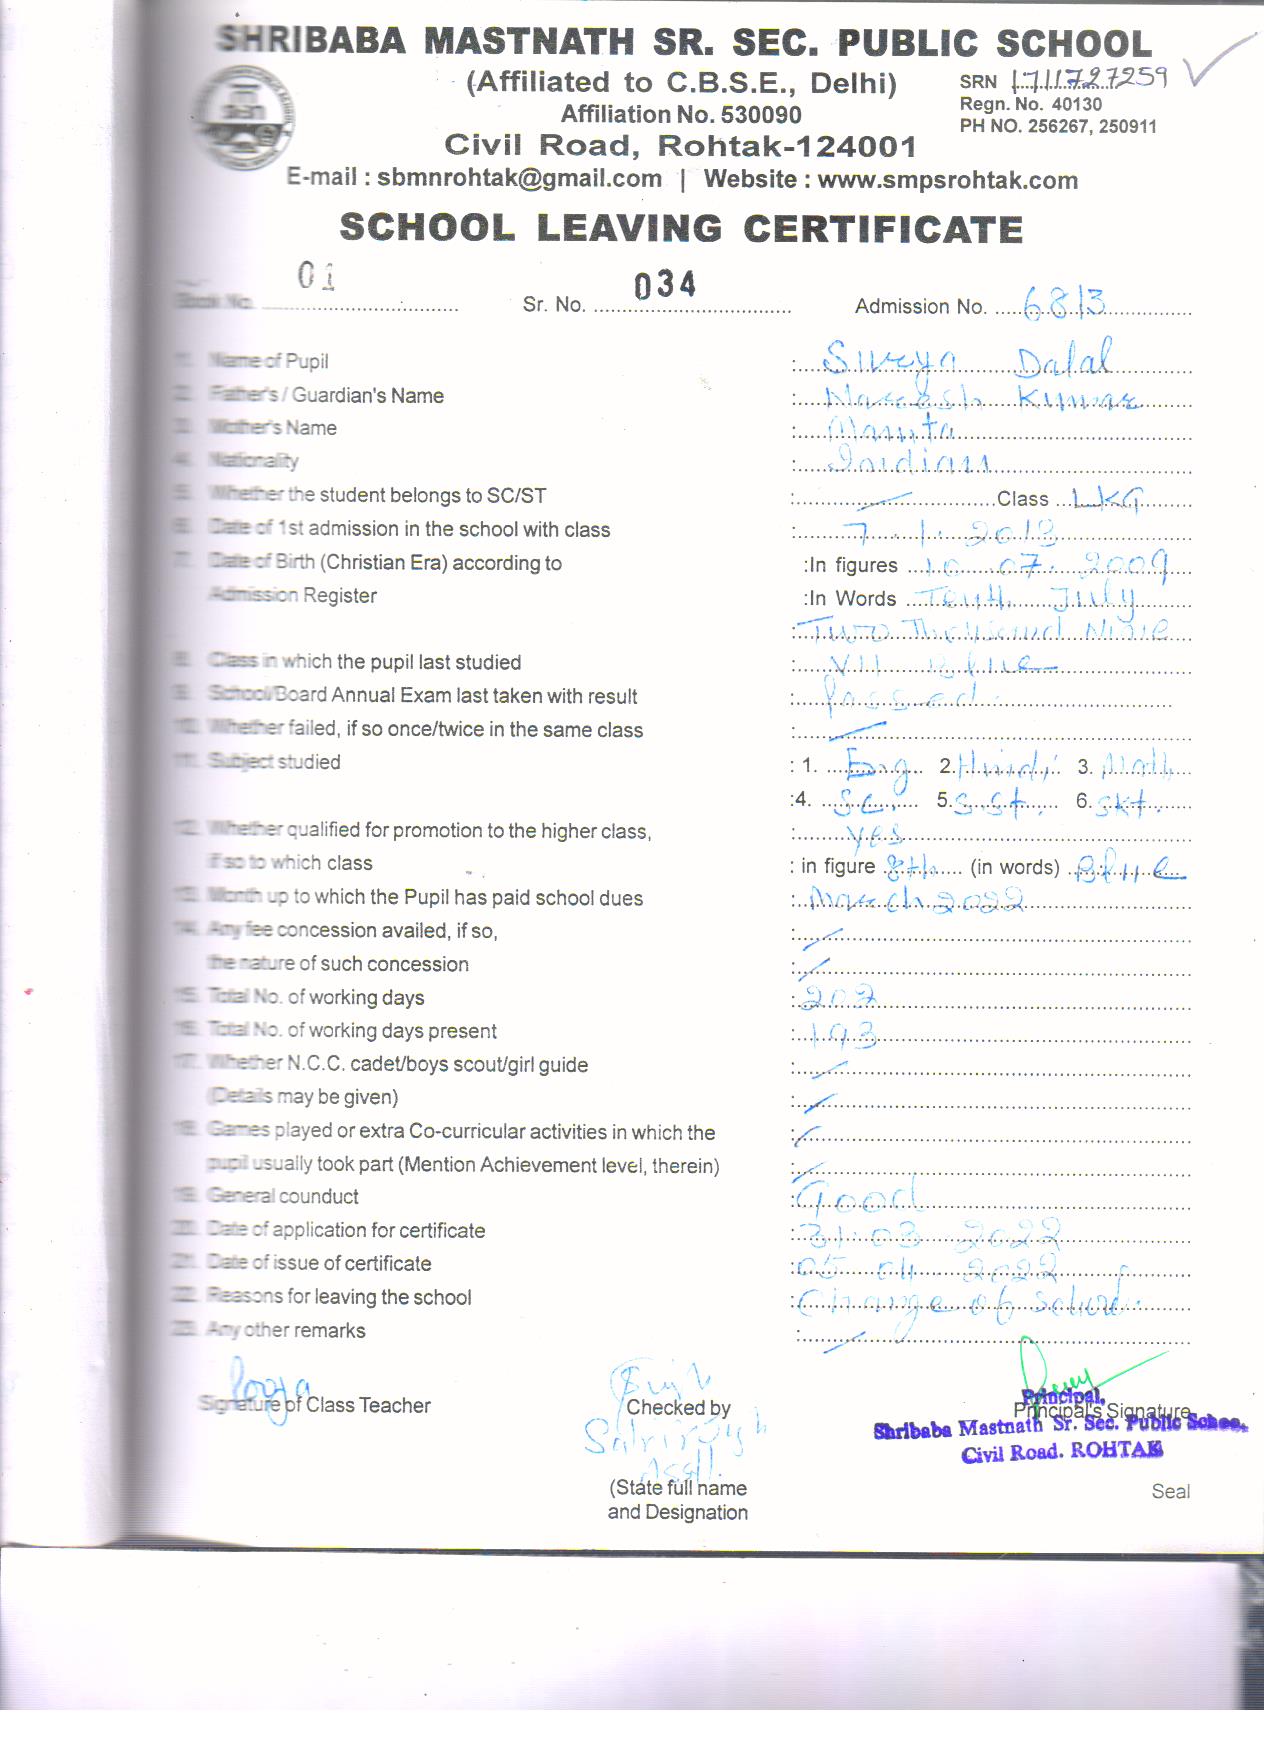 SHRIBABA MASTNATH SR. SEC. PUBLIC SCHOOL
(Affiliated to C.B.S.E., Delhi)
SRN 1711727259
Affiliation No. 530090
Regn. No. 40130
PH NO. 256267, 250911
Civil Road, Rohtak-124001
E-mail : sbmnrohtak@gmail.com | Website : www.smpsrohtak.com
SCHOOL LEAVING CERTIFICATE
Book No. 01 Sr. No. 034 Admission No. 6813
1. Name of Pupil : Dalal
2. Father's / Guardian's Name : Naresh Kumar
3. Mother's Name : Mamta
4. Nationality : Indian
5. Whether the student belongs to SC/ST : Class LKG
6. Date of 1st admission in the school with class : 7.1.2013
7. Date of Birth (Christian Era) according to :In figures 10.07.2009
Admission Register :In Words Tenth July
: Two Thousand Nine
8. Class in which the pupil last studied : VII Blue
9. School/Board Annual Exam last taken with result : Passed.
10. Whether failed, if so once/twice in the same class :
11. Subject studied : 1. Eng 2. Hindi 3. Math
:4. Sc. 5. S.St. 6. Skt.
12. Whether qualified for promotion to the higher class, : Yes
if so to which class : in figure 8th (in words) Blue
13. Month up to which the Pupil has paid school dues : March 2022
14. Any fee concession availed, if so, :
the nature of such concession :
15. Total No. of working days : 207
16. Total No. of working days present : 193
17. Whether N.C.C. cadet/boys scout/girl guide :
(Details may be given) :
18. Games played or extra Co-curricular activities in which the :
pupil usually took part (Mention Achievement level, therein) :
19. General counduct : Good
20. Date of application for certificate : 31.03.2022
21. Date of issue of certificate : 05.04.2022
22. Reasons for leaving the school : Change of School.
23. Any other remarks :
Pooja
Signature of Class Teacher
Checked by
Principal's Signature
Principal,
Shribaba Mastnath Sr. Sec. Public School,
Civil Road, ROHTAK
(State full name
and Designation
Seal